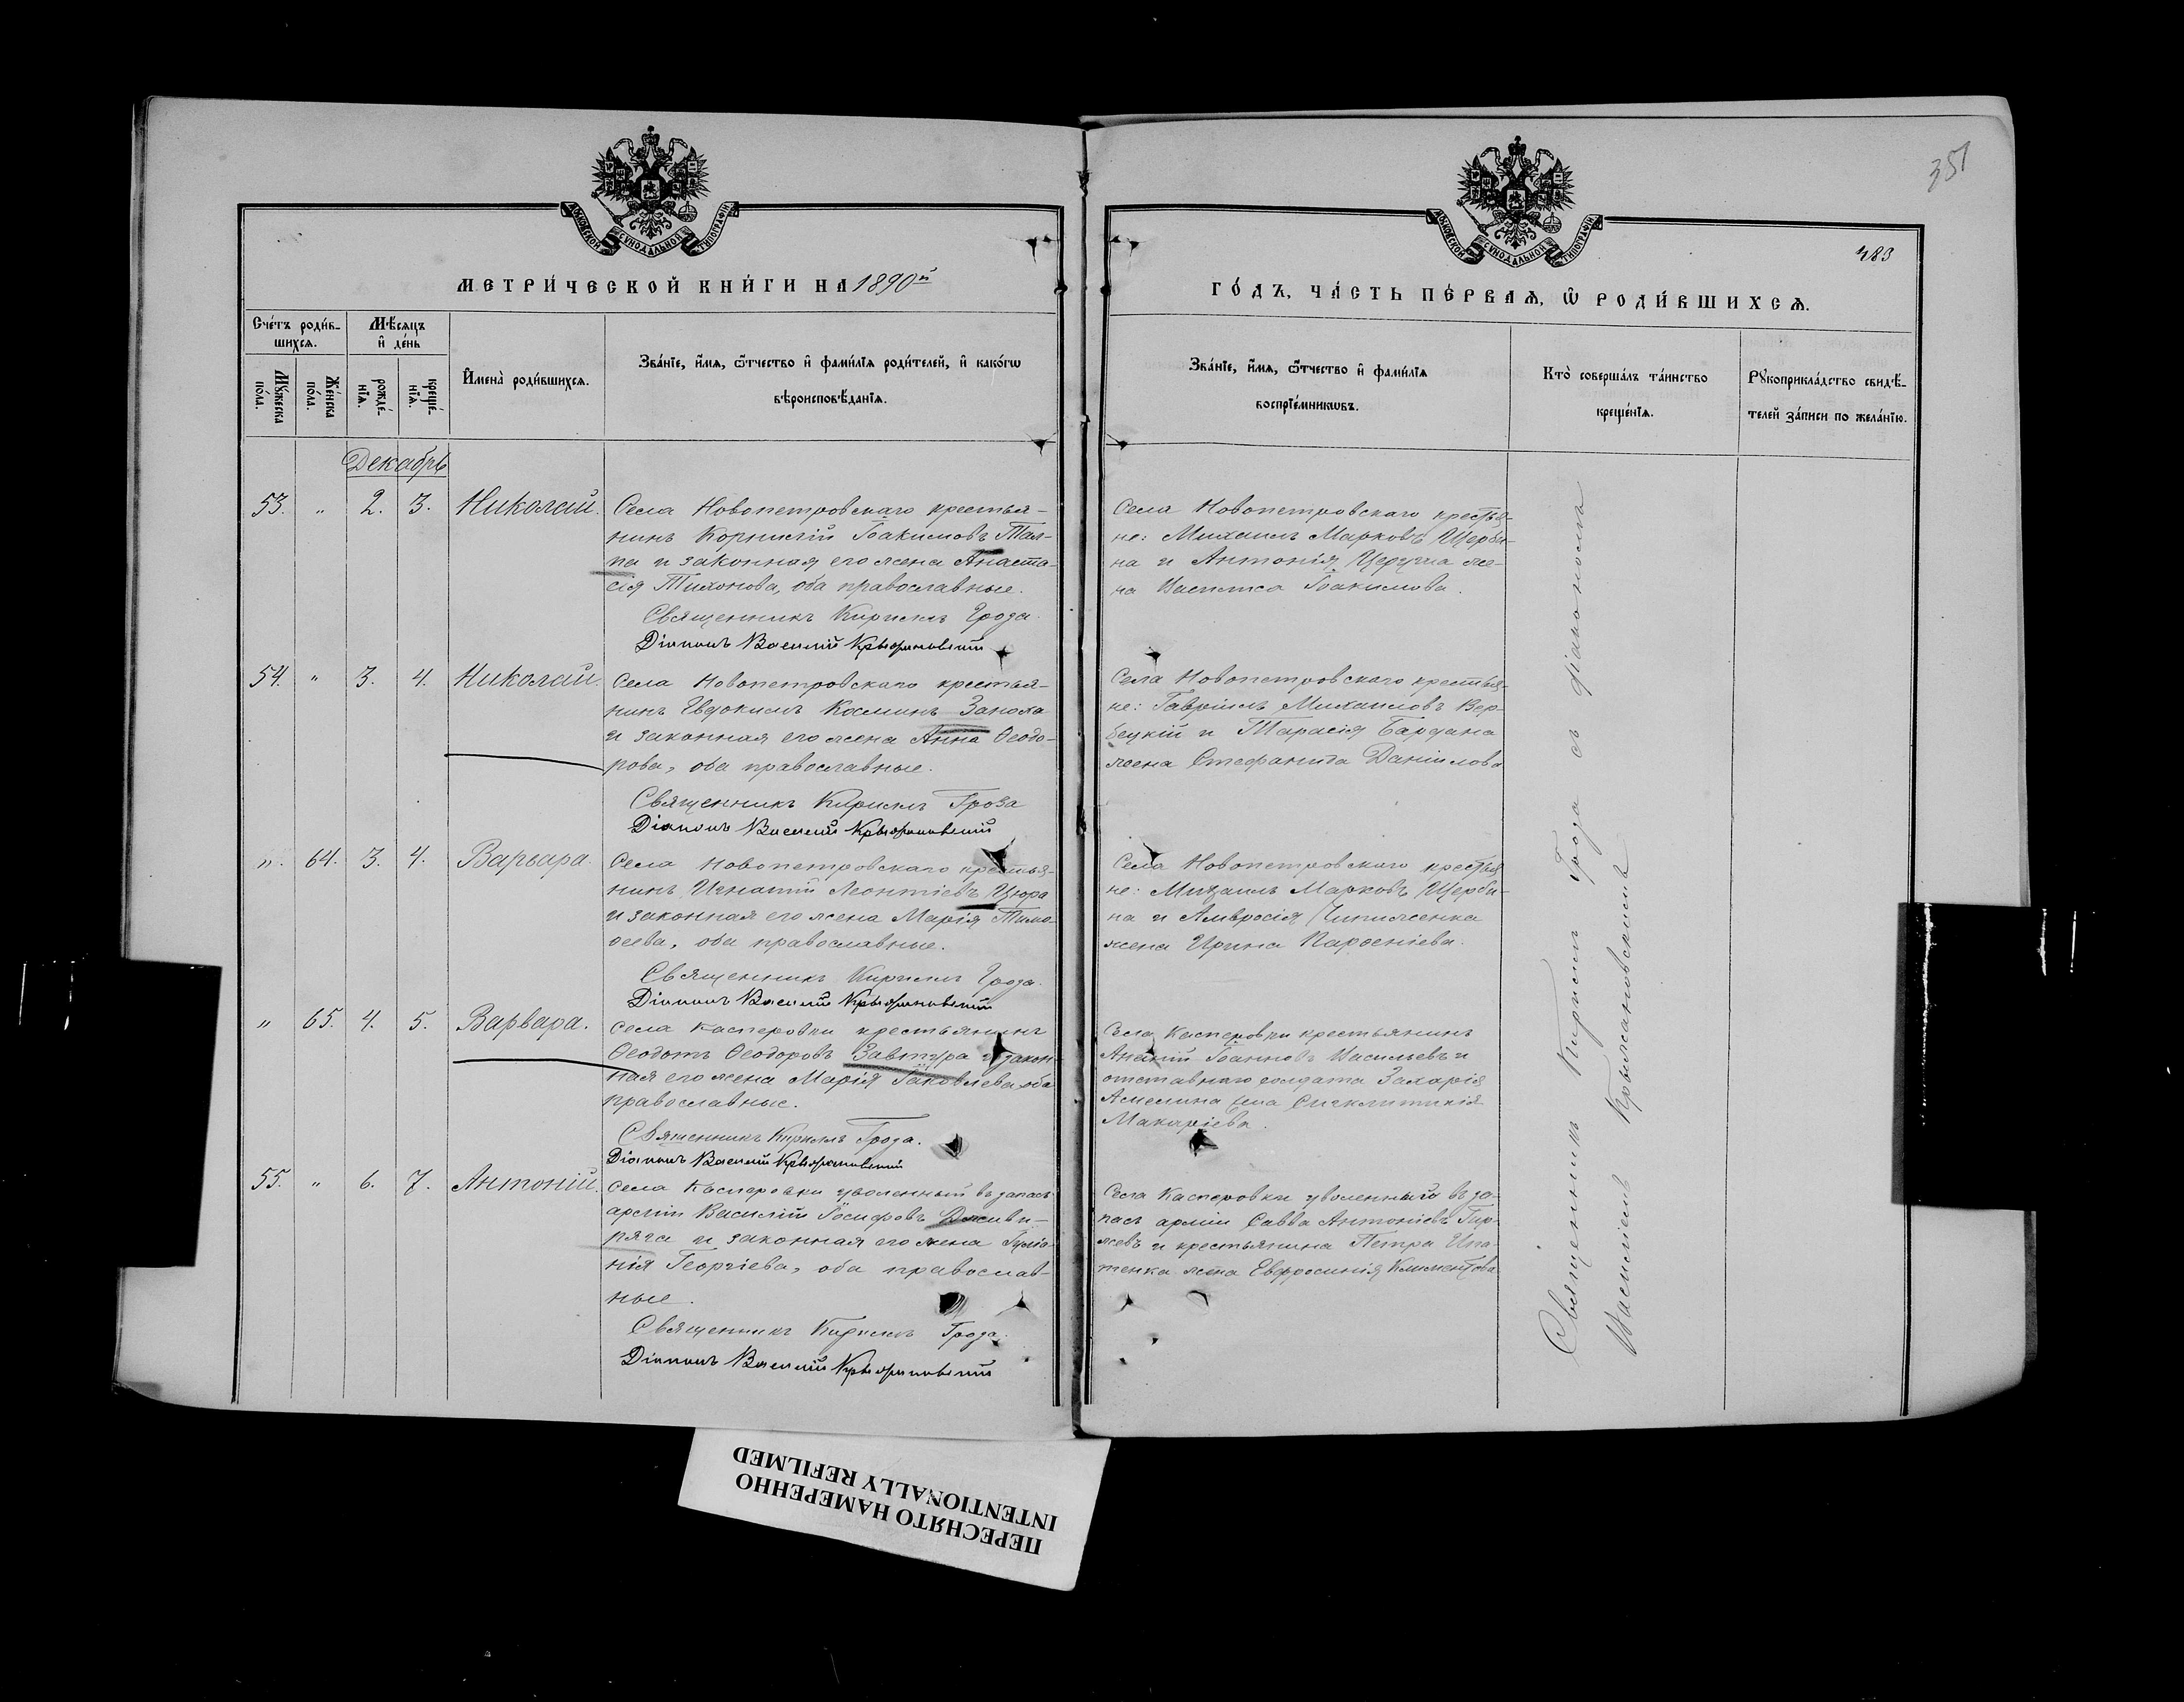 351
483
МОСКОВСКОЙ СѴНОДАЛЬНОЙ ТИПОГРАФІИ
МОСКОВСКОЙ СѴНОДАЛЬНОЙ ТИПОГРАФІИ
МЕТРИ́ЧЕСКОЙ КНИ́ГИ НА 1890й
ГО́ДЪ, ЧА́СТЬ ПЕ́РВАѦ, Ѿ РОДИ́ВШИХСѦ.
Сче́тъ роди́в-
шихсѧ.
Мꙋ́жеска по́ла.
Же́нска по́ла.
Мѣ́сѧцъ и҆ де́нь
рожде́нїѧ.
креще́нїѧ.
И҆мена̀ роди́вшихсѧ.
Зва́нїе, и҆́мѧ, ѻ҆́тчество и҆ фами́лїѧ роди́телей, и҆ како́гѡ
вѣроисповѣ́данїѧ.
Зва́нїе, и҆́мѧ, ѻ҆́тчество и҆ фами́лїѧ
воспрїе́мникѡвъ.
Кто̀ соверша́лъ та́инство
креще́нїѧ.
Рꙋкоприкла́дство свидѣ́-
телей за́писи по жела́нїю.
Декабрь
53. " 2. 3. Николай.
Села Новопетровскаго крестья-
нинъ Корнилій Іоакимовъ Тал-
па и законная его жена Анаста-
сія Тихонова, оба православные.
Священникъ Кириллъ Гроза.
Діаконъ Василій Крыжановскій
Села Новопетровскаго крестья-
не: Михаилъ Марковъ Щерби-
на и Антонія же-
на Василиса Іоакимова.
54. " 3. 4. Николай.
Села Новопетровскаго крестья-
нинъ Евдокимъ Косминъ Заноза
и законная его жена Анна Ѳеодо-
рова, оба православные.
Священникъ Кириллъ Гроза
Діаконъ Василій Крыжановскій
Села Новопетровскаго крестья-
не: Гавріилъ Михаиловъ Вер-
бецкій и Тарасія Бардана
жена Стефанида Даніилова
". 64. 3. 4. Варвара.
Села Новопетровскаго крестья-
нинъ Игнатій Леонтіевъ Цюра
и законная его жена Марія Тимо-
ѳеева, оба православные.
Священникъ Кириллъ Гроза.
Діаконъ Василій Крыжановскій
Села Новопетровскаго крестья
не: Михаилъ Марковъ Щерби-
на и Амвросія
жена Ирина Парѳеніева.
" 65. 4. 5. Варвара.
Села Касперовки крестьянинъ
Ѳеодотъ Ѳеодоровъ Завтура и закон-
ная его жена Марія Іаковлева оба
православные.
Священникъ Кириллъ Гроза.
Діаконъ Василій Крыжановскій
Села Касперовки крестьянинъ
Іоанновъ Васильевъ и
отставнаго солдата Захарія
Амелина жена Синклитикія
Макаріева.
55. " 6. 7. Антоній.
Села Касперовки уволенный въ запасъ
арміи Василій Іосифовъ Дживи-
пяга и законная его жена Іуліа-
нія Георгіева, оба православ-
ные.
Священникъ Кириллъ Гроза.
Діаконъ Василій Крыжановскій
Села Касперовки уволенный въ за-
пасъ арміи Савва Антоніевъ Гир-
жевъ и крестьянина Петра Игна-
тенка жена Евфросинія Климентова
Священникъ Кириллъ Гроза съ діакономъ
Василіемъ Крыжановскимъ
ПЕРЕСНЯТО НАМЕРЕННО
INTENTIONALLY REFILMED